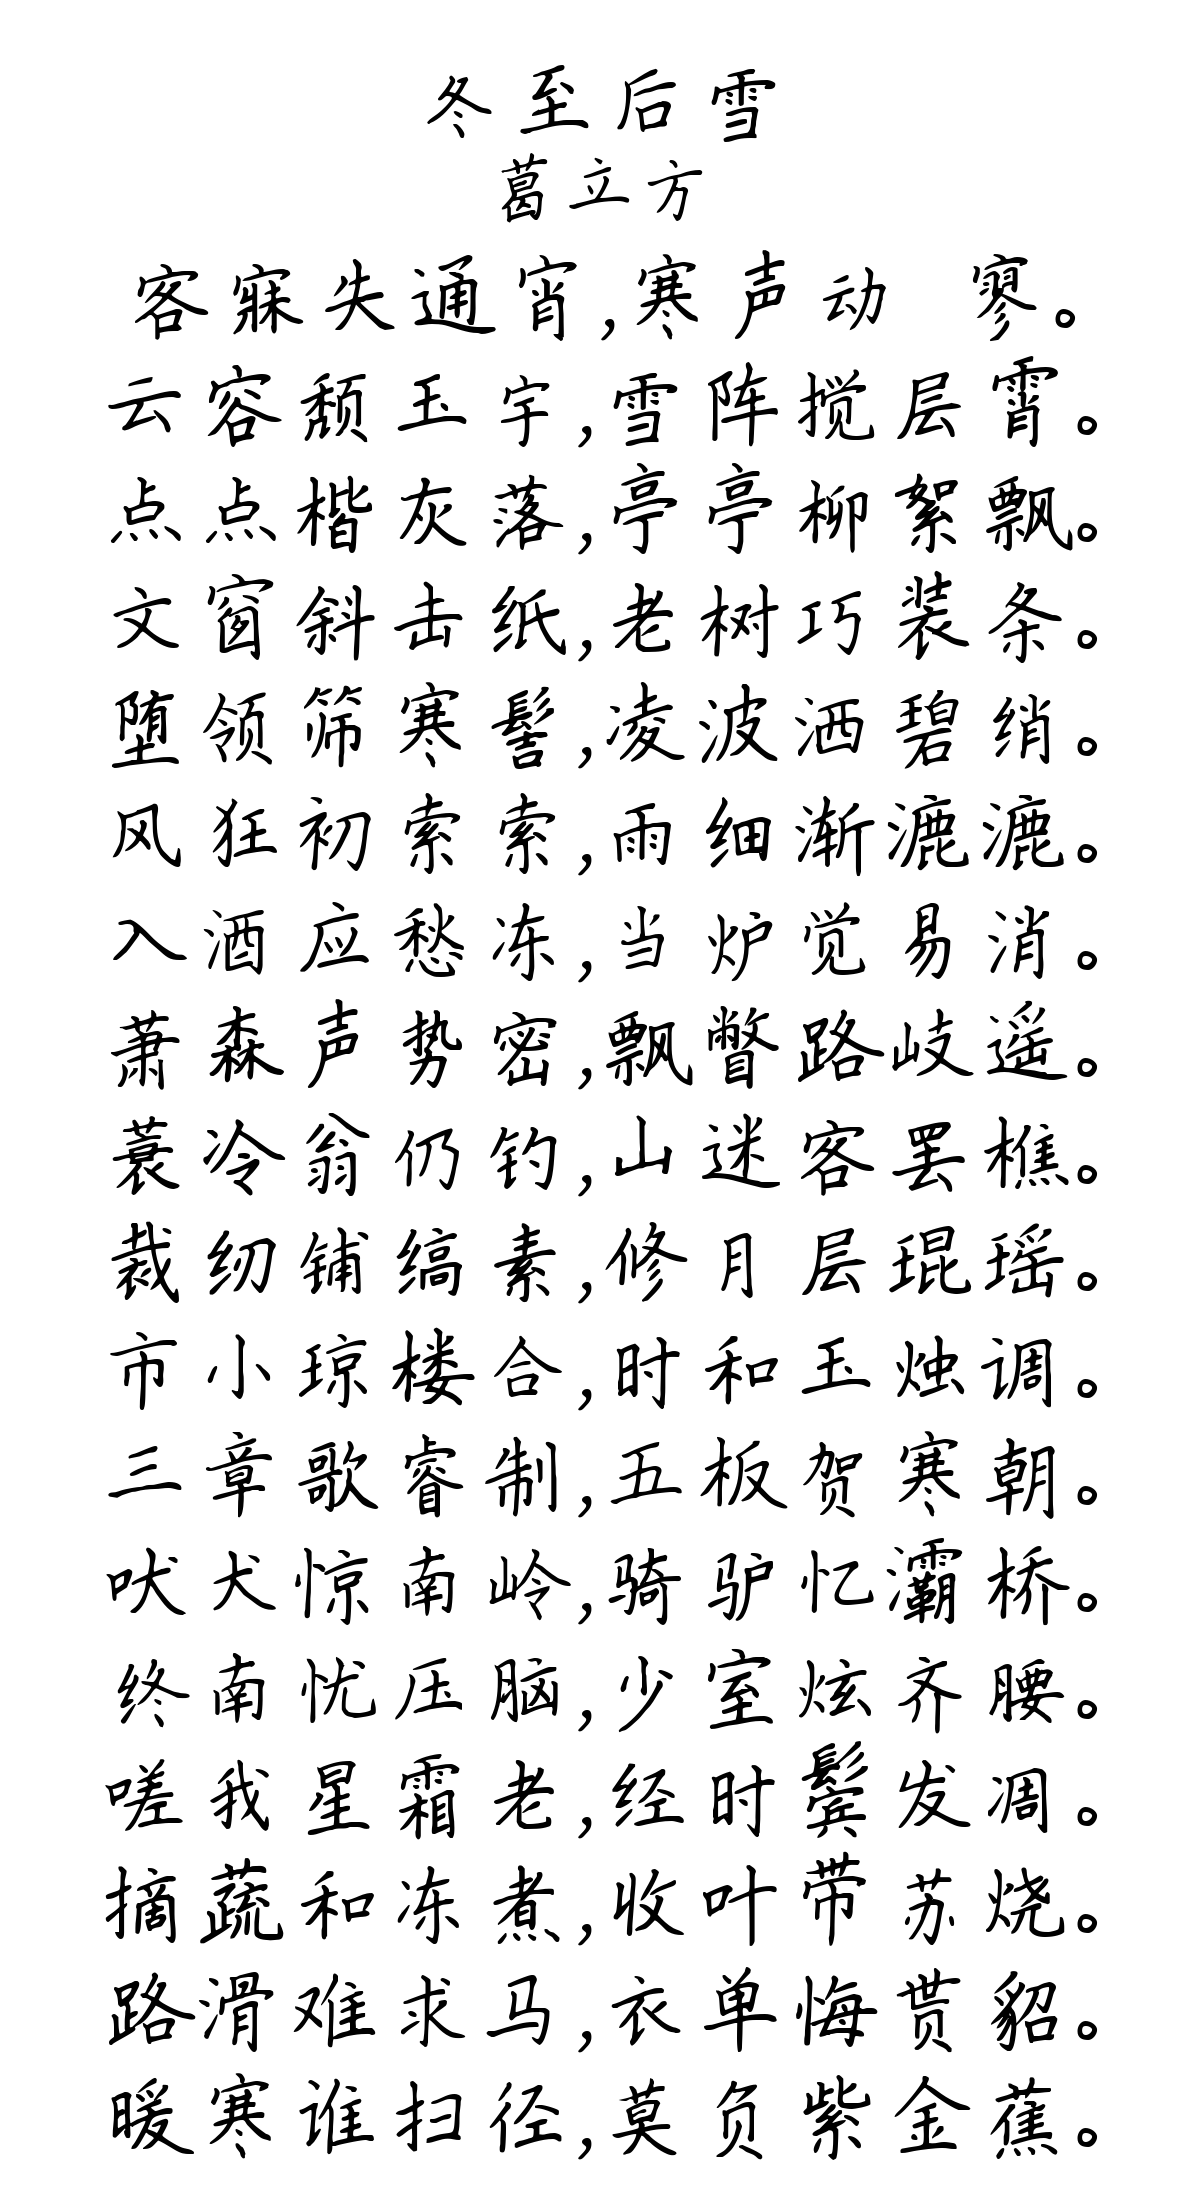 冬至后雪
葛立方
客寐失通宵,寒声动 寥。
云容颓玉宇,雪阵搅层霄。
点点楷灰落,亭亭柳絮飘。
文窗斜击纸,老树巧装条。
堕领筛寒髻,凌波洒碧绡。
风狂初索索,雨细渐漉漉。
入酒应愁冻,当炉觉易消。
萧森声势密,飘瞥路岐遥。
蓑冷翁仍钓,山迷客罢樵。
裁纫铺缟素,修月层琨瑶。
市小琼楼合,时和玉烛调。
三章歌睿制,五板贺寒朝。
吠犬惊南岭,骑驴忆灞桥。
终南忧压脑,少室炫齐腰。
嗟我星霜老,经时鬓发凋。
摘蔬和冻煮,收叶带苏烧。
路滑难求马,衣单悔贳貂。
暖寒谁扫径,莫负紫金蕉。